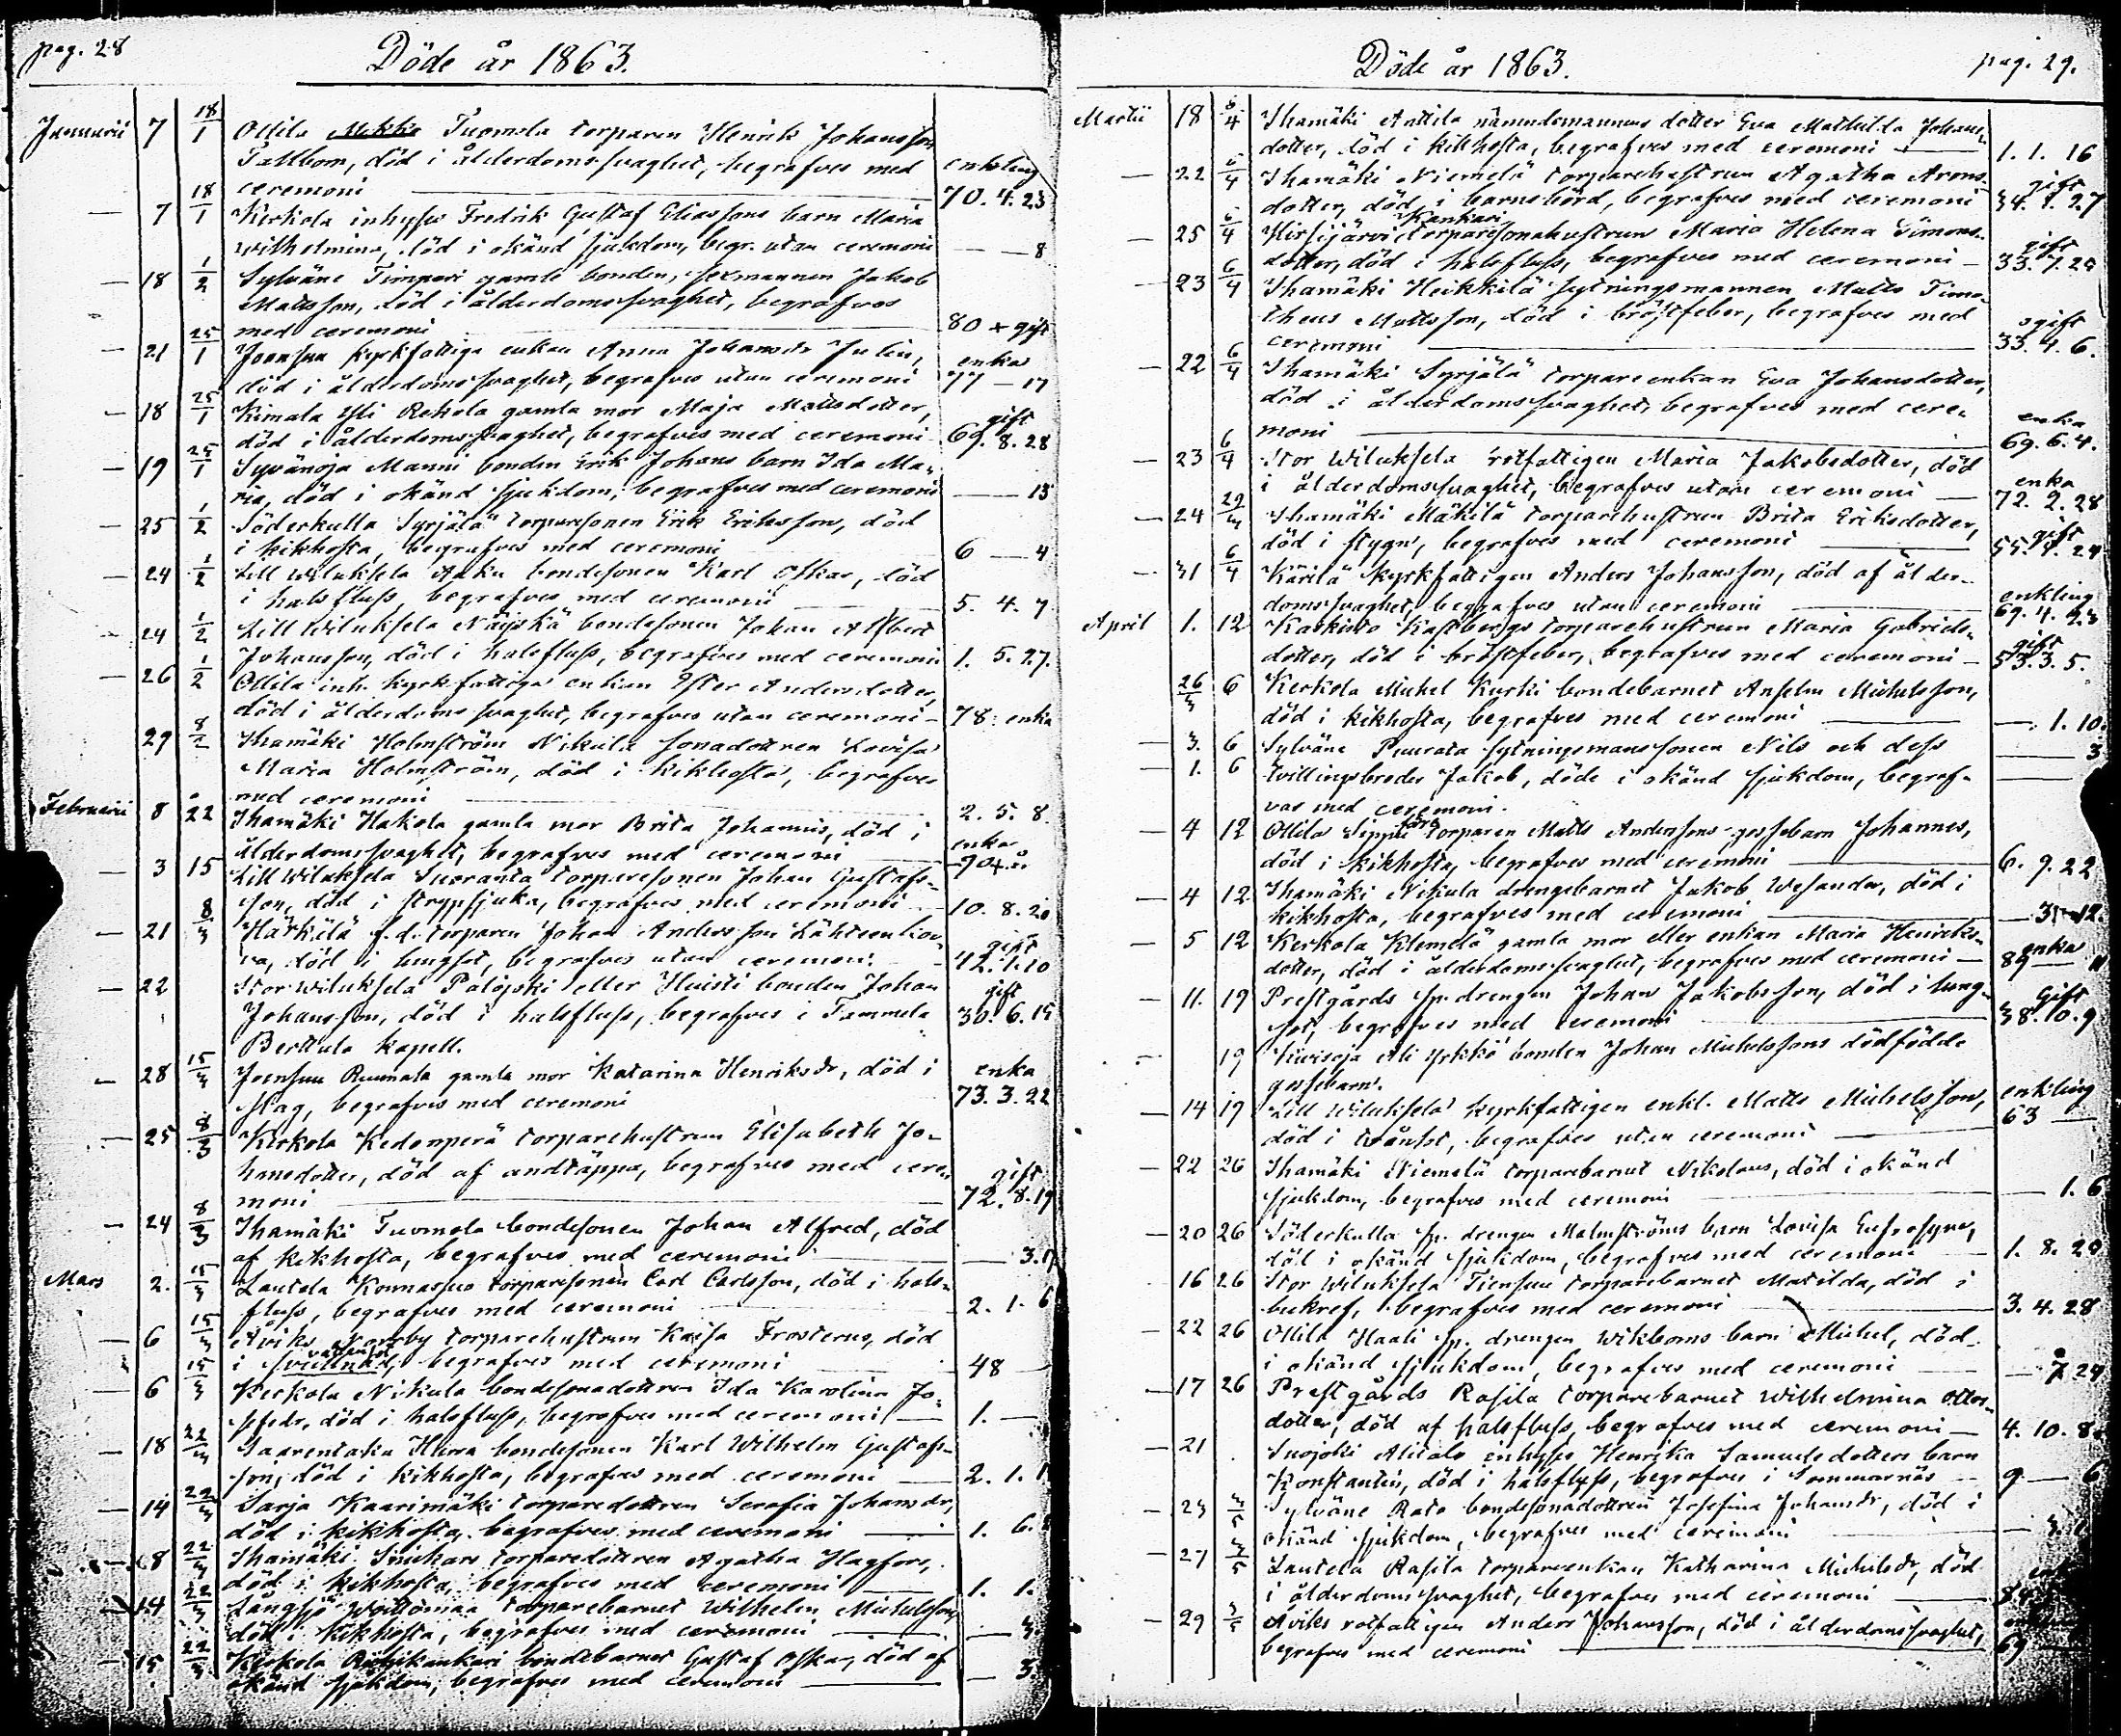 pag. 28
Döde år 1863.
Januarii 7 18/1 Ollila Mikko Tuomela torparen Henrik Johansson
Tallbom, död i ålderdomssvaghet, begrafves med enkling
ceremoni 70. 4. 23
— 7 18/1 Kerkola inhyses Fredrik Gustaf Eliassons barn Maria
Wilhelmina, död i okänd sjukdom, begr. utan ceremoni — 8
— 18 1/2 Sylväne Timperi gamle bonden, sexmannen Jakob
Matsson, död i ålderdomssvaghet, begrafves
med ceremoni 80 + gift
— 21 25/1 Joensuu kyrkfattiga enkan Anna Johansdr Julin, enka
död i ålderdomssvaghet, begrafves utan ceremoni 77 — 17
— 18 25/1 Kimala Yli Rehola gamla mor Maja Mattsdotter, gift
död i ålderdomssvaghet, begrafves med ceremoni 69. 8. 28
— 19 25/1 Syvänoja Manni bonden Erik Johans barn Ida Ma-
ria, död i okänd sjukdom, begrafves med ceremoni — 13
— 25 1/2 Söderkulla Syrjälä torparesonen Erik Eriksson, död
i kikhosta, begrafves med ceremoni 6 — 4
— 24 1/2 Lill Wiluksela Anku bondesonen Karl Oskar, död
i halsfluss, begrafves med ceremoni 5. 4. 7
— 24 1/2 Lill Wiluksela Näijskä bondesonen Johan Albert
Johansson, död i halsfluss, begrafves med ceremoni 1. 5. 27.
— 26 1/2 Ollila inh. kyrkfattiga enkan Ester Andersdotter,
död i ålderdomssvaghet, begrafves utan ceremoni 78: enka
29 8/2 Ihamäki Holmström Nikula sonadottren Lovisa
Maria Holmström, död i kikhosta, begrafves
med ceremoni 2. 5. 8.
Februarii 8 22 Ihamäki Hakola gamla mor Brita Johansdr, död i enka
ålderdomssvaghet, begrafves med ceremoni
— 3 15 Lill Wiluksela Suoranta torparesonen Johan Gustafs-
son, död i strypsjuka, begrafves med ceremoni 10. 8. 20
— 21 8/3 Härkälä f.d. torparen Johan Andersson Lähteenkor- gift
va, död i lungsot, begrafves utan ceremoni 42. 1. 10
— 22 Stor Wiluksela Palojoki eller Huisti bonden Johan gift
Johansson, död i halsfluss, begrafves i Tammela 30. 6. 15
Berttula kapell.
— 28 15/3 Joensuu Ruumala gamla mor Katarina Henriksdr, död i enka
slag, begrafves med ceremoni 73. 3. 22
— 25 8/3 Kerkola Kedonperä torparehustrun Elisabeth Jo-
hansdotter, död af andtäppa, begrafves med cere- gift
moni 72. 8. 19
— 24 8/3 Ihamäki Tuomola bondesonen Johan Alfred, död
af kikhosta, begrafves med ceremoni — 3. 17
Mars 2. 15/3 Lautela Konnassuo torparesonen Carl Carlsson, död i hals-
fluss, begrafves med ceremoni 2. 1. 6
— 6 15/3 Aviks Norrby torparehustrun Kaisa Frosterus, död
i vattusot, begrafves med ceremoni 48 —
— 6 15/3 Kerkola Nikula bondesonadottren Ida Karolina Jo-
sefsdr, död i halsfluss, begrafves med ceremoni 1. —
— 18 22/3 Saarentaka Hurra bondesonen Karl Wilhelm Gustafs-
son, död i kikhosta, begrafves med ceremoni 2. 1. 1
— 14 22/3 Sarja Kaarimäki torparedottren Serafia Johansdr,
död i kikhosta, begrafves med ceremoni 1. 6.
— 8 22/3 Ihamäki Snickars torparedottren Agatha Hagfors,
död i kikhosta, begrafves med ceremoni 1. 1.
— 14 22/3 Långsjö Woittomaa torparebarnet Wilhelm Michelsson,
död i kikhosta, begrafves med ceremoni — 3.
— 15 22/3 Kerkola bondebarnet Gustaf Oskar, död af
okänd sjukdom, begrafves med ceremoni — 3.
Döde år 1863.
pag. 29.
Martii 18 6/4 Ihamäki Anttila nämndemannens dotter Eva Mathilda Johans-
dotter, död i kikhosta, begrafves med ceremoni 1. 1. 16
— 22 6/4 Ihamäki Niemelä torparehustrun Agatha Arons- gift
dotter, död i barnsbörd, begrafves med ceremoni 34. 1. 27
Kankari
— 25 6/4 Hirsijärvi torparesonahustrun Maria Helena Simons- gift
dotter, död i halsfluss, begrafves med ceremoni 33. 7. 29
— 23 6/4 Ihamäki Heikkilä sytningsmannen Matts Timo-
theus Mattsson, död i bröstfeber, begrafves med ogift
ceremoni 33. 4. 6.
— 22 6/4 Ihamäki Syrjälä torpareenkan Eva Johansdotter,
död i ålderdomssvaghet, begrafves med cere- enka
moni 69. 6. 4.
— 23 6/4 Stor Wiluksela rotfattigen Maria Jakobsdotter, död enka
i ålderdomssvaghet, begrafves utan ceremoni 72. 2. 28
— 24 29/3 Ihamäki Mäkilä torparehustrun Brita Eriksdotter, gift
död i stygn, begrafves med ceremoni 55. 7. 24
— 31 6/4 Kärilä kyrkfattigen Anders Johansson, död af ålder- enkling
domssvaghet, begrafves utan ceremoni 69. 4. 23
April 1. 12 Karkisto Kastbergs torparehustrun Maria Gabriels- gift
dotter, död i bröstfeber, begrafves med ceremoni 53. 3. 5.
26/3 6 Kerkola Michel Kurki bondebarnet Anselm Michelsson,
död i kikhosta, begrafves med ceremoni — 1. 10.
— 3. 6 Sylväne Puurata sytningsmanssonen Nils och dess 3
— 1. 6 tvillingsbroder Jakob, döde i okänd sjukdom, begraf-
vas med ceremoni.
— 4 12 Ollila Sippilä torparen Matts Anderssons gossebarn Johannes,
död i kikhosta, begrafves med ceremoni 6. 9. 22
— 4 12 Ihamäki Nikula drengebarnet Jakob Wesander, död i
kikhosta, begrafves med ceremoni — 3. 12.
— 5 12 Kerkola Klemelä gamla mor eller enkan Maria Henriks- enka
dotter, död i ålderdomssvaghet, begrafves med ceremoni 89 — 11
— 11. 19 Prestgårds sp. drengen Johan Jakobsson, död i lung- Gift
sot, begrafves med ceremoni 38. 10. 9
19 Kuisoja Ali Yrkkö bonden Johan Michelssons dödfödde
gossebarn.
— 14 19 Lill Wiluksela kyrkfattigen enkl. Matts Michelsson, enkling
död i trånsot, begrafves utan ceremoni 63 —
— 22 26 Ihamäki Niemelä torparebarnet Nikolaus, död i okänd
sjukdom, begrafves med ceremoni — 1. 6
— 20 26 Söderkulla sp. drengen Malmströms barn Lovisa Eufrosyne,
död i okänd sjukdom, begrafves med ceremoni 1. 8. 20
16 26 Stor Wiluksela Tiensuu torparebarnet Matilda, död i
bukref, begrafves med ceremoni 3. 4. 28
— 22 26 Ollila Haali sp. drengen Wikboms barn Michel, död
i okänd sjukdom, begrafves med ceremoni — 7 24
— 17 26 Prestgårds Rasila torparebarnet Wilhelmina Ottos-
dotter, död af halsfluss, begrafves med ceremoni 4. 10. 8.
— 21 Suojoki Alitalo inhyses Henrika Samuelsdotters barn
Konstantin, död i halsfluss, begrafves i Sommarnäs 9 — 6
— 23 3/5 Sylväne Rato bondesonadottren Josefina Johansdr, död i
okänd sjukdom, begrafves med ceremoni — 3. 1
— 27 3/5 Lautela Rasila torpareenkan Katharina Michelsdr, död
i ålderdomssvaghet, begrafves med ceremoni
— 29 3/5 Aviks rotfattigen Anders Johansson, död i ålderdomssvaghet,
begrafves med ceremoni 69